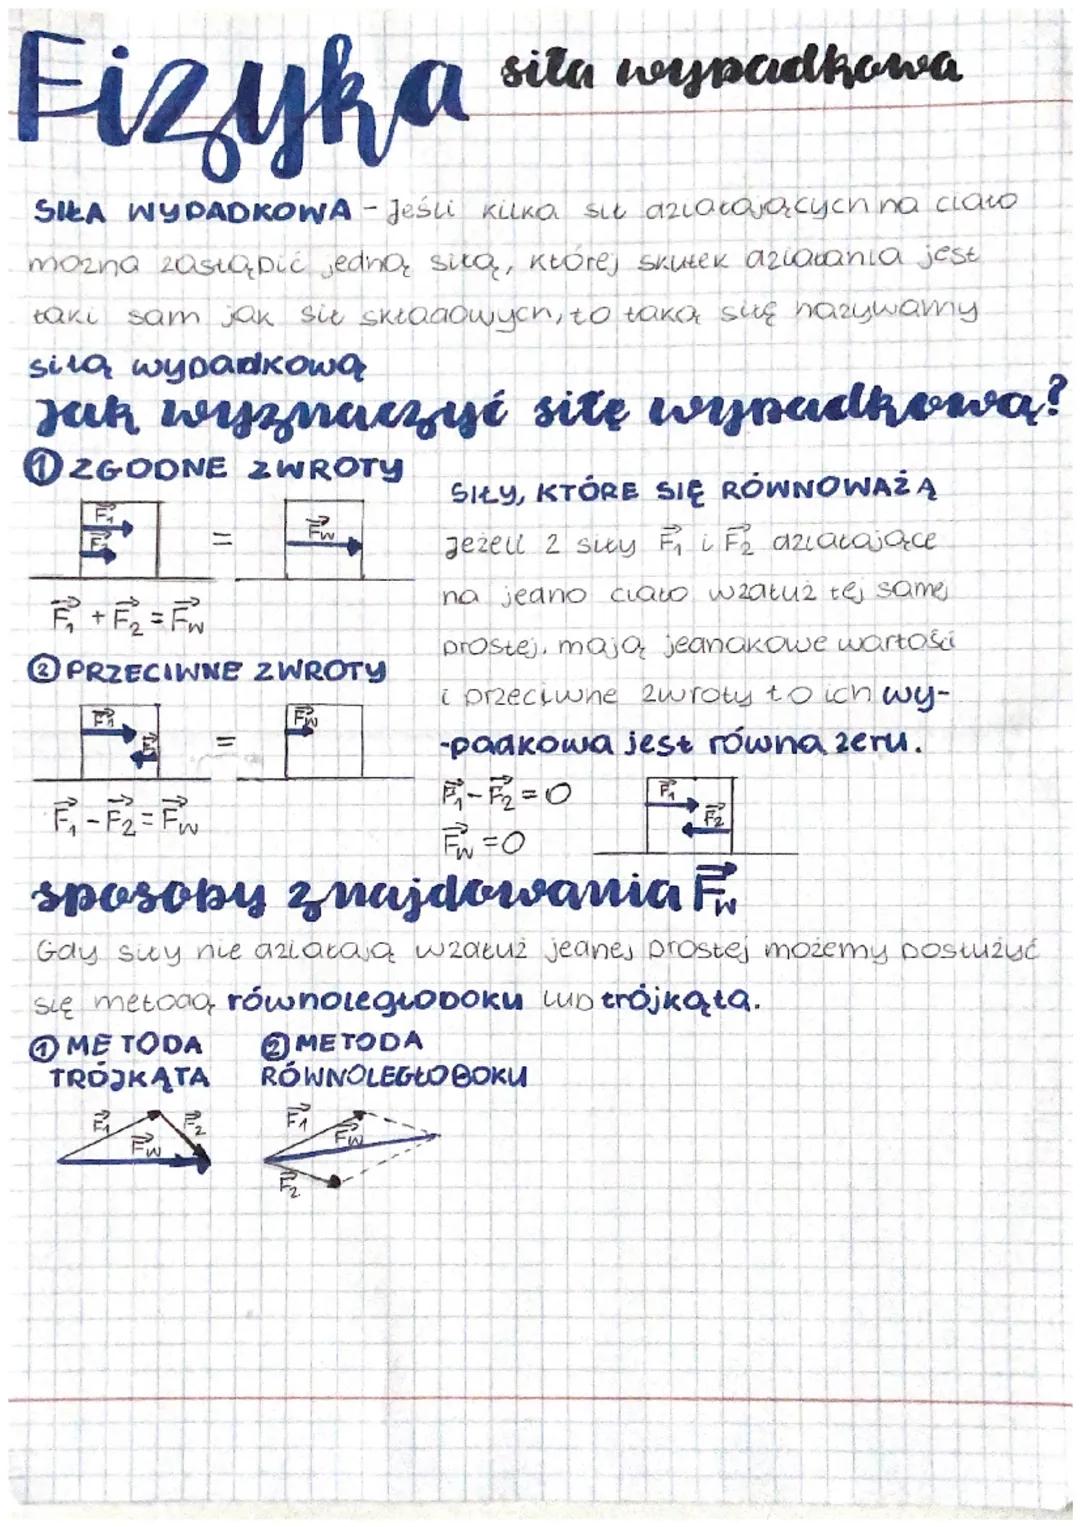 Fizyka siła wypadkowa
SIŁA WYPADKOWA - Jeśli kilka sił działających na ciało
można zastąpić jedną siłą, której skutek działania jest
taki sam jak sił składowych, to taką siłę nazywamy
siłą wypadkową
Jak wyznaczyć siłę wypadkową?
① ZGODNE ZWROTY
F₁
F₂
=
Fw
F₁ + F₂ = Fw
② PRZECIWNE ZWROTY
F₁
F₂
=
Fw
F₁ - F₂ = Fw
SIŁY, KTÓRE SIĘ RÓWNOWAŻĄ
Jeżeli 2 siły F₁ i F₂ działające
na jedno ciało wzdłuż tej samej
prostej, mają jednakowe wartości
i przeciwne zwroty to ich wy-
-padkowa jest równa zeru.
F₁ - F₂ = 0
Fw = 0
F₁
F₂
sposoby znajdowania Fw
Gdy siły nie działają wzdłuż jednej prostej możemy posłużyć
się metodą równoległoboku lub trójkąta.
① METODA
TRÓJKĄTA
F₁
F₂
Fw
② METODA
RÓWNOLEGŁOBOKU
F₁
Fw
F₂